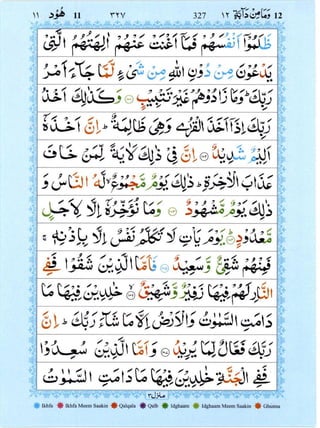 ١١ هُوْد 11 ٣٢٧ 327 ١٢ وَمَا مِنْ دَآبَّةٍ 12
ظَلَمُوْۤا اَنْفُسَهُمْ فَمَاۤ اَغْنَتْ عَنْهُمْ اٰلِهَتُهُمُ الَّتِيْ
يَدْعُوْنَ مِنْ دُوْنِ اللّٰهِ مِنْ شَيْءٍ لَّمَّا جَآءَ اَمْرُ
رَبِّكَ ؕ وَمَا زَادُوْهُمْ غَيْرَ تَتْبِيْبٍ ۝ وَكَذٰلِكَ اَخْذُ
رَبِّكَ اِذَاۤ اَخَذَ الْقُرٰى وَهِيَ ظَالِمَةٌ ؕ اِنَّ اَخْذَهٗۤ
اَلِيْمٌ شَدِيْدٌ ۝ اِنَّ فِيْ ذٰلِكَ لَاٰيَةً لِّمَنْ خَافَ
عَذَابَ الْاٰخِرَةِ ؕ ذٰلِكَ يَوْمٌ مَّجْمُوْعٌ ۙ لَّهُ النَّاسُ وَ
ذٰلِكَ يَوْمٌ مَّشْهُوْدٌ ۝ وَمَا نُؤَخِّرُهٗۤ اِلَّا لِاَجَلٍ
مَّعْدُوْدٍ ۝ يَوْمَ يَاْتِ لَا تَكَلَّمُ نَفْسٌ اِلَّا بِاِذْنِهٖ ۚ
فَمِنْهُمْ شَقِيٌّ وَّسَعِيْدٌ ۝ فَاَمَّا الَّذِيْنَ شَقُوْا فَفِي
النَّارِ لَهُمْ فِيْهَا زَفِيْرٌ وَّشَهِيْقٌ ۝ خٰلِدِيْنَ فِيْهَا مَا
دَامَتِ السَّمٰوٰتُ وَالْاَرْضُ اِلَّا مَا شَآءَ رَبُّكَ ؕ اِنَّ
رَبَّكَ فَعَّالٌ لِّمَا يُرِيْدُ ۝ وَاَمَّا الَّذِيْنَ سُعِدُوْا
فَفِي الْجَنَّةِ خٰلِدِيْنَ فِيْهَا مَا دَامَتِ السَّمٰوٰتُ
منزل ٣
Ikhfa Ikhfa Meem Saakin Qalqala Qalb Idghaam Idghaam Meem Saakin Ghunna